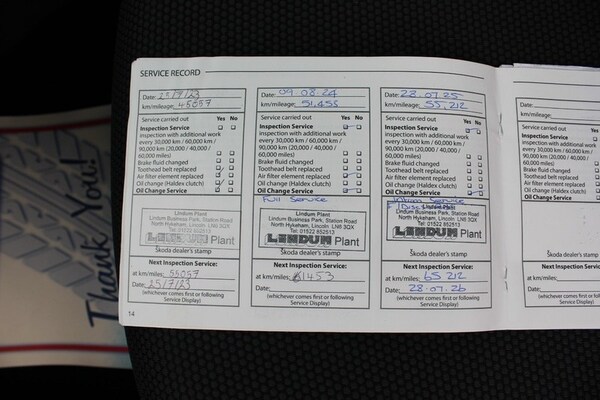 SERVICE RECORD
Date: 25/7/23
km/mileage: 45057
Service carried out Yes No
Inspection Service
Inspection with additional work
every 30,000 km / 60,000 km /
90,000 km (20,000 / 40,000 /
60,000 miles)
Brake fluid changed
Toothead belt replaced
Air filter element replaced
Oil change (Haldex clutch)
Oil Change Service
Lindum Plant
Lindum Business Park, Station Road
North Hykeham, Lincoln LN6 3QX
Tel: 01522 852513
LINDUM Plant
Škoda dealer's stamp
Next Inspection Service:
at km/miles: 55057
Date: 25/7/23
(whichever comes first or following
Service Display)
14
Date: 09.08.24
km/mileage: 51,453
Service carried out Yes No
Inspection Service
Inspection with additional work
every 30,000 km / 60,000 km /
90,000 km (20,000 / 40,000 /
60,000 miles)
Brake fluid changed
Toothead belt replaced
Air filter element replaced
Oil change (Haldex clutch)
Oil Change Service
Full Service
Lindum Plant
Lindum Business Park, Station Road
North Hykeham, Lincoln LN6 3QX
Tel: 01522 852513
LINDUM Plant
Škoda dealer's stamp
Next Inspection Service:
at km/miles: 61453
Date:
(whichever comes first or following
Service Display)
Date: 28.07.25
km/mileage: 55,212
Service carried out Yes No
Inspection Service
Inspection with additional work
every 30,000 km / 60,000 km /
90,000 km (20,000 / 40,000 /
60,000 miles)
Brake fluid changed
Toothead belt replaced
Air filter element replaced
Oil change (Haldex clutch)
Oil Change Service
Service
Lindum Business Park, Station Road
North Hykeham, Lincoln LN6 3QX
Tel: 01522 852513
LINDUM Plant
Škoda dealer's stamp
Next Inspection Service:
at km/miles: 65 212
Date: 28.07.26
(whichever comes first or following
Service Display)
Date:
km/mileage:
Service carried out
Inspection Service
Inspection with additional
every 30,000 km / 60,000
90,000 km (20,000 / 40,000
60,000 miles)
Brake fluid changed
Toothead belt replaced
Air filter element replaced
Oil change (Haldex clutch)
Oil Change Service
Škoda dealer's
Next Inspection
at km/miles:
Date:
(whichever comes first
Service Display)
Thank you!